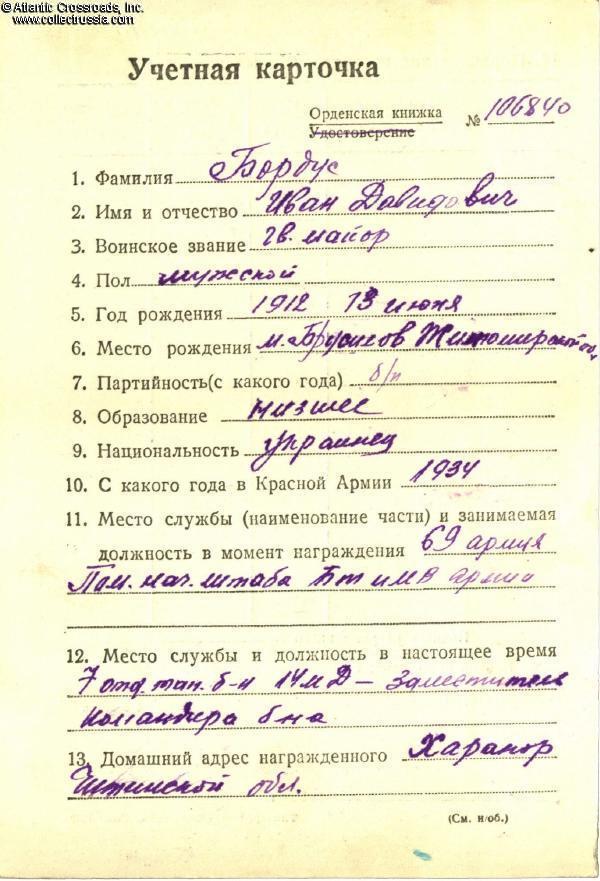 © Atlantic Crossroads, Inc.
www.collectrussia.com
Учетная карточка
Орденская книжка
Удостоверение № 106840
1. Фамилия Борбус
2. Имя и отчество Иван Давидович
3. Воинское звание гв. майор
4. Пол мужской
5. Год рождения 1912 13 июня
6. Место рождения м. Брусилов Житомирской обл
7. Партийность(с какого года) б/п
8. Образование низшее
9. Национальность украинец
10. С какого года в Красной Армии 1934
11. Место службы (наименование части) и занимаемая
должность в момент награждения 69 армия
Пом. нач. штаба БТ и МВ армии
12. Место службы и должность в настоящее время
7 отд. тан. б-н 14 МД – Заместитель
командира б-на
13. Домашний адрес награжденного Харанор
Читинской обл.
(См. н/об.)